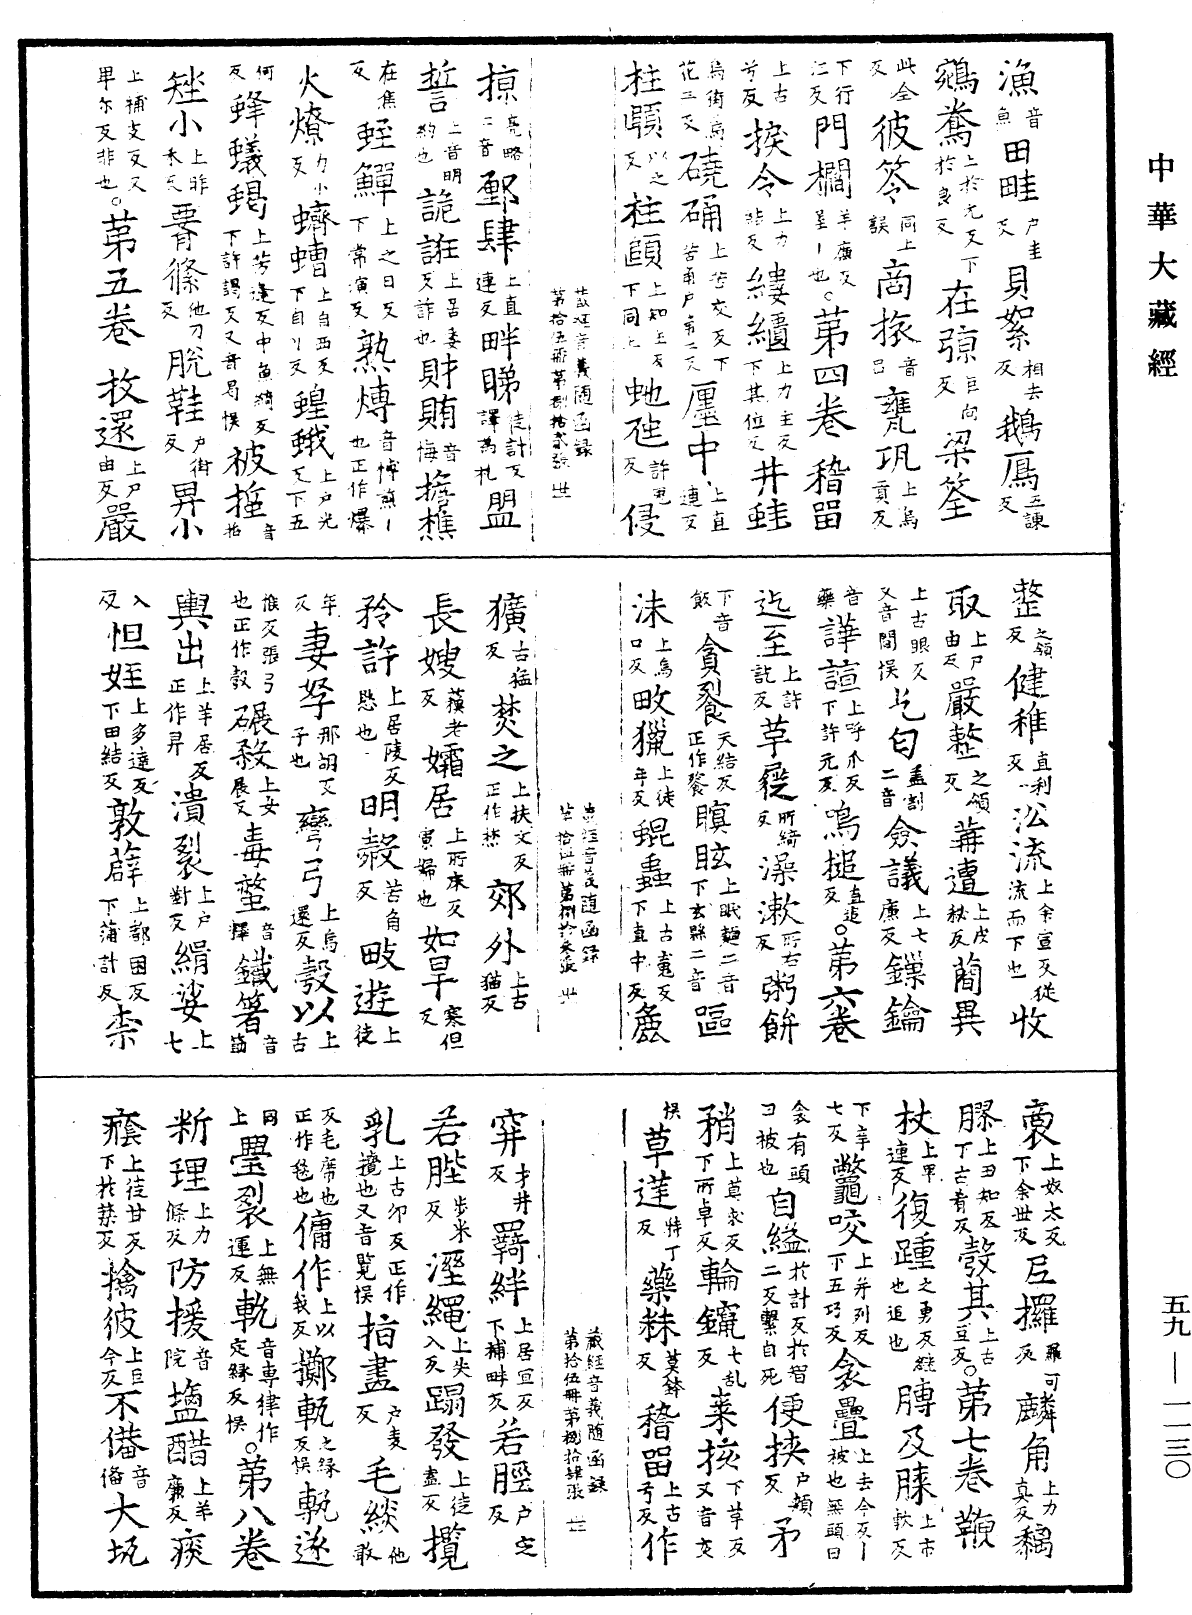 中華大藏經
五九—一一三〇
漁音魚田畦户圭反貝絮相去反鵝鴈五諫反
鵎鴦上於元反下於良反在弶巨向反梁筌
此全反彼笭同上誤商旅音呂甕瓨上烏貢反
下行江反門櫩羊廉反皇—也。第四卷 稽留
上古兮反捩令上力結反縷繢上力主反下其位反井蛙
烏街烏花二反磽确上苦交反下苦角户角二反厘中上直連反
柱頤以之反柱頤上知主反下同上虵虺許鬼反侵
藏經音義隨函録 第拾伍冊第捌拾貳張 丗
掠亮略二音鄽肆上直連反畔睇徒計反譯爲札盟
誓上音明約也詭誑上居委反詐也財賄音悔擔樵
在焦反蛭鱓上之日反下常演反熟煿音博煎—也正作爆
火燎力小反蠐螬上自西反下自刀反蝗蛾上户光反下五
何反蜂蟻蝎上芳逢反中魚綺反下許謁反又音曷悞被
矬小上昨禾反脣絛他刀反脫鞋户街反昇小
上補支反又卑尔反非也。第五卷 收還上户由反嚴
整之領反健稚直利反㳂流上余宣反從流而下也收
取上户由反嚴整之領反䔒遭上戍秘反蔄異
上古眼反又音閒悞乞匃蓋割二音僉議上七廉反鏁鑰
音藥譁諠上呼瓜反下許元反鳴搥直追反。第六卷
迄至上許訖反草屣所綺反澡漱所右反粥餅
下音飯貪飱天結反正作餮瞑眩上眠麵二音下玄縣二音嘔
沬上烏口反畋獵上徒年反蜫蟲上古䰟反下直中反麁
藏經音義隨函録 第拾伍冊第捌拾叁張 丗
獷古猛反焚之上扶文反正作焚郊外上古猫反
長嫂蘓老反孀居上所床反寡婦也如旱寒但反
矜許上居陵反愍也明㲉苦角反畋遊上徒
年反妻孥那胡反子也彎弓上烏還反彀以上古
候反張弓也正作彀碾殺上女展反毒螫音釋鐵箸音筯
輿出上羊居反正作舁潰裂上户對反絹娑上七
入反怛姪上多達反下田結反敦薜上都困反下蒲計反柰
裒上奴太反下余世反叵攞羅可反麟角上力真反黐
膠上丑知反下古肴反彀其上古豆反。第七卷 鞭
杖上卑連反復踵之勇反繼也追也膞及膝上市軟反
下辛七反鼈咬上并列反下五巧反衾疊上去今反—被也無頭曰
衾有頭曰被也自縊於計反於智二反繫自死便挾户頰反矛
矟上莫求反下所卓反輪鑹七乱反菜挍下莫反又音交
悞草莛特丁反藥秣莫鉢反稽留上古兮反作
藏經音義隨函録 第拾伍冊第捌拾肆張 丗
穽才井反羇絆上居宜反下補畔反若脛户定反
若䏶步米反溼繩上失入反蹋發上徒盍反攬
乳上古卯反正作攪也又音覧悞指盡户麦反毛緂他敢
反毛席也正作毯也傭作上以我反擲軌之緣反悞軏遂
同上璺裂上無運反軌音専律作定緣反悞。第八卷
斷理上力條反防援音院塩醋上羊廉反痰
癊上徒甘反下於禁反擒彼上巨今反不俻音俻大坑